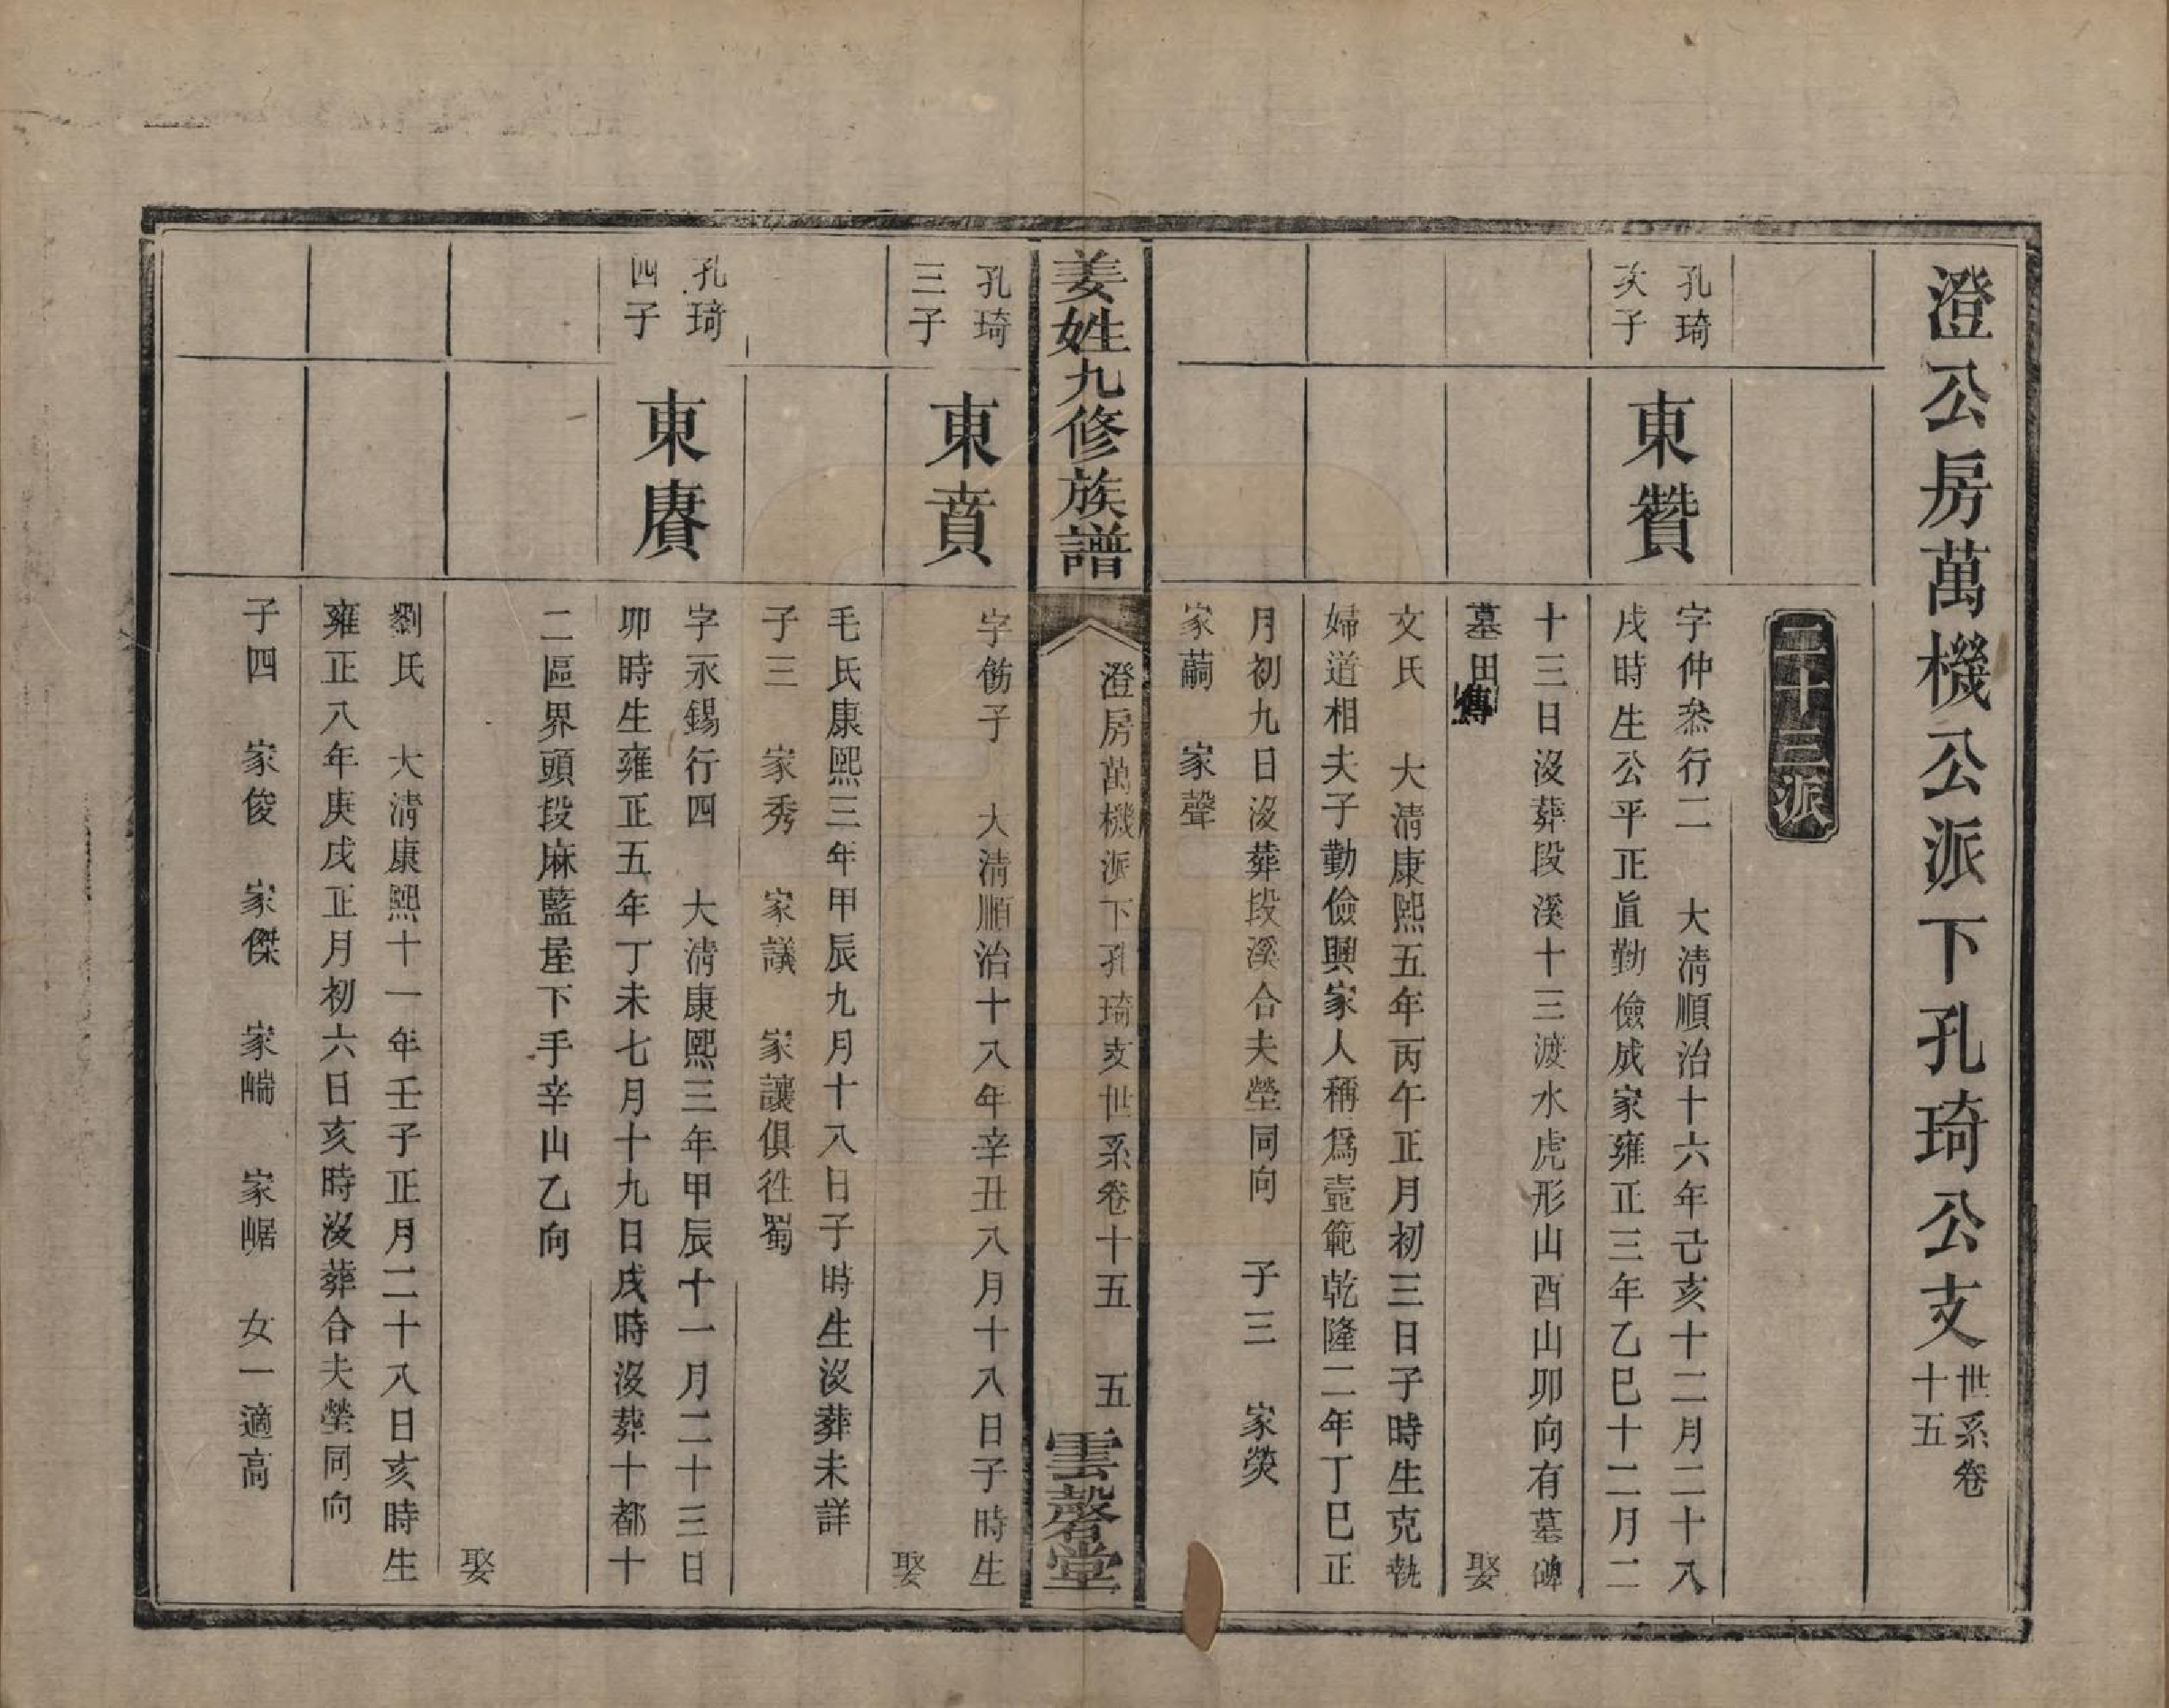 澄公房萬機公派下孔琦公支世系卷十五
二十三派
孔琦次子
東贊
字仲叅行二　大清順治十六年己亥十二月二十八
戌時生公平正眞勤儉成家雍正三年乙巳十二月二
十三日沒葬段溪十三渡水虎形山酉山卯向有墓碑
墓田傳　娶
文氏　大清康熙五年丙午正月初三日子時生克執
婦道相夫子勤儉興家人稱爲壼範乾隆二年丁巳正
月初九日沒葬段溪合夫塋同向　子三　家熒
家繭　家聲
姜姓九修族譜
澄房萬機派下孔琦支世系卷十五　五
雲磬堂
孔琦三子
東賁
字飭子　大清順治十八年辛丑八月十八日子時生
娶
毛氏康熙三年甲辰九月十八日子時生沒葬未詳
子三　家秀　家議　家讓俱徃蜀
孔琦四子
東賡
字永錫行四　大清康熙三年甲辰十一月二十三日
卯時生雍正五年丁未七月十九日戌時沒葬十都十
二區界頭段麻藍屋下手辛山乙向
娶
劉氏　大清康熙十一年壬子正月二十八日亥時生
雍正八年庚戌正月初六日亥時沒葬合夫塋同向
子四　家俊　家傑　家㟨　家崌　女一適高